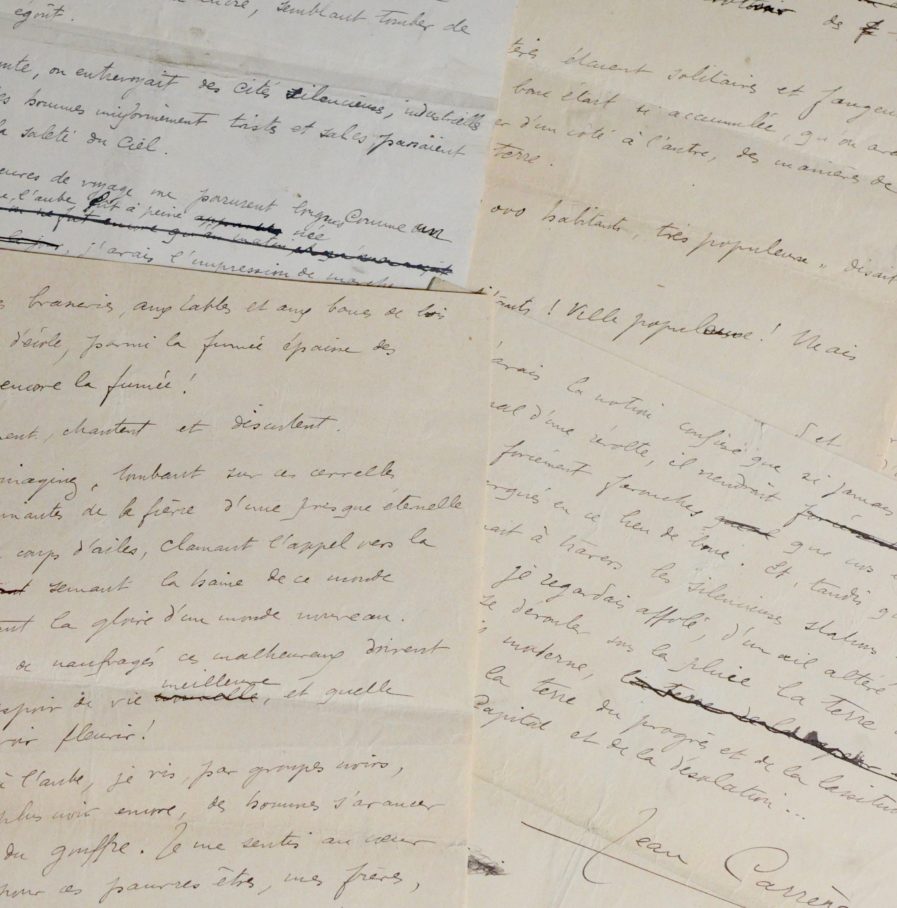 semblant tomber de
égoût.
on entrevoyait des cités silencieuses, industrielles
hommes uniformément tristes et sales passaient
la saleté du ciel.
de voyage me parurent longues comme un
l'aube, fut à peine née
j'avais l'impression de
brasseries, aux tables et aux bancs de bois
parmi la fumée épaisse des
encore la fumée !
chantent et discutent.
tombant sur ces cervelles
de la fièvre d'une presque éternelle
coups d'ailes, clamant l'appel vers la
semant la haine de ce monde
la gloire d'un monde nouveau.
de naufragés ces malheureux doivent
espoir de vie meilleure, et quelle
fleurir !
à l'aube, je vis, par groupes noirs,
plus noir encore, des hommes s'avancer
du gouffre. Je me sentis au cœur
pour ces pauvres êtres, mes frères,
de 7
étaient solitaires et fangeu
boue était si accumulée qu'on
d'un côté à l'autre, des manières de
terre.
000 habitants, très populeuse", disait
! Ville populeuse ! Mais
la notion confuse que si jamais
d'une révolte, il viendrait
forcément farouches que
en ce lieu de boue. Et, tandis qu
à travers les silencieuses stations
je regardais affolé, d'un œil altéré
se dérouler sous la pluie la terre
moderne,
la terre du progrès et de la lassitu
Capital et de la désolation...
Jean Carrère